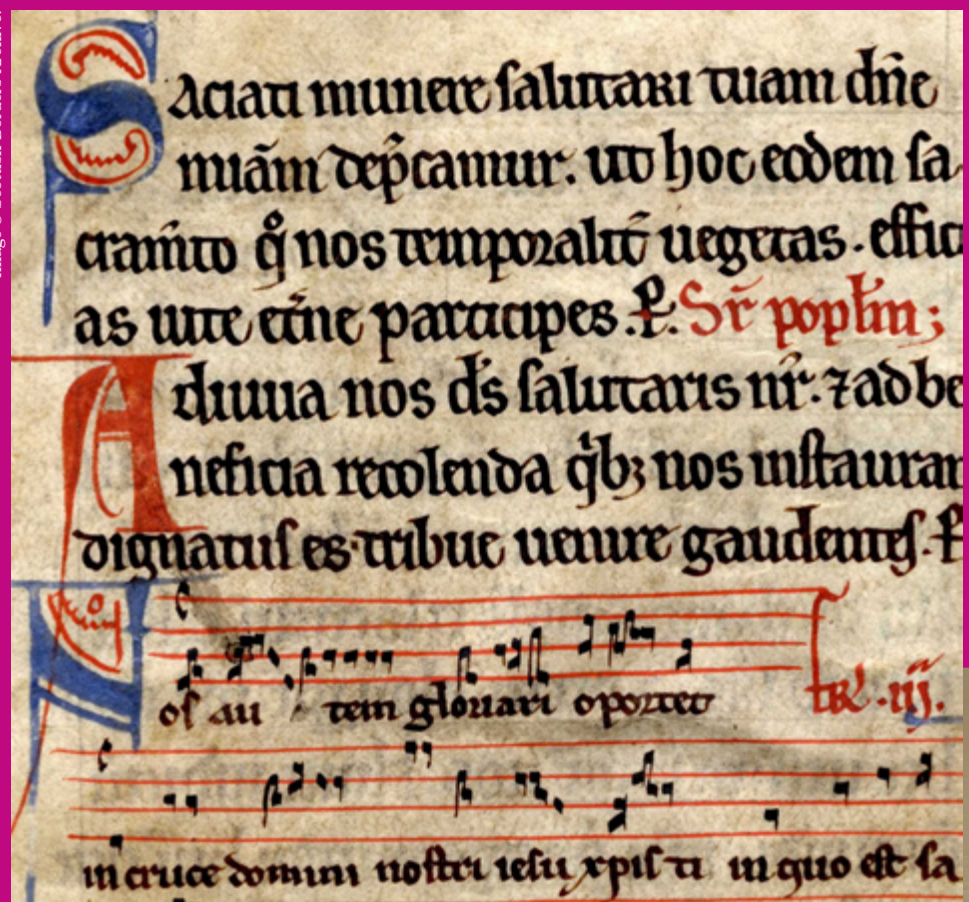 Saciati munere salutari tuam dn̄e
miām dep̄camur. ut hoc eodem sa
cram̄to q̊ nos temporalit̄ uegetas. effic
as uite et̄ne participes. P. Sr̄ popl̄m;
Adiuua nos ds̄ salutaris nr̄. ⁊ ad be
neficia recolenda qͥbꝫ nos instaurar
dignatus es tribue uenire gaudentes. P
Nos au tem gloriari oportet fr̄. iiij.
in cruce domini nostri iesu xpisti in quo est sa